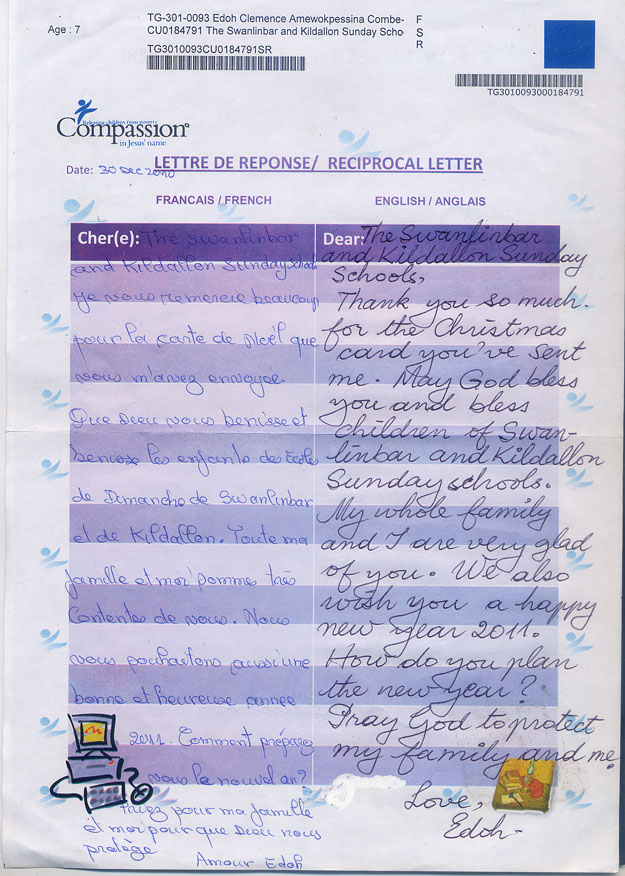 Age : 7
TG-301-0093 Edoh Clemence Amewokpessina Combe-
CU0184791 The Swanlinbar and Kildallon Sunday Scho
TG3010093CU0184791SR
F
S
R
TG3010093000184791
Releasing children from poverty
Compassion®
in Jesus' name
LETTRE DE REPONSE/ RECIPROCAL LETTER
Date: 30 Dec 2010
FRANCAIS / FRENCH
Cher(e): The Swanlinbar
and Kildallon Sunday school
Je vous remercie beaucoup
pour la carte de Noël que
vous m'avez envoyée.
Que Dieu vous benisse et
benisse les enfants des Ecoles
de Dimanche de Swanlinbar
et de Kildallon. Toute ma
famille et moi somme très
Contents de vous. Nous
vous souhaitons aussi une
bonne et heureuse annee
2011. Comment préparez
vous le nouvel an?
Priez pour ma famille
et moi pour que Dieu nous
protège
Amour Edoh
ENGLISH / ANGLAIS
Dear: The Swanlinbar
and Kildallon Sunday
Schools,
Thank you so much.
for the Christmas
card you've sent
me. May God bless
you and bless
children of Swan-
linbar and Kildallon
Sunday schools.
My whole family
and I are very glad
of you. We also
wish you a happy
new year 2011.
How do you plan
the new year?
Pray God to protect
my family and me.
Love,
Edoh-